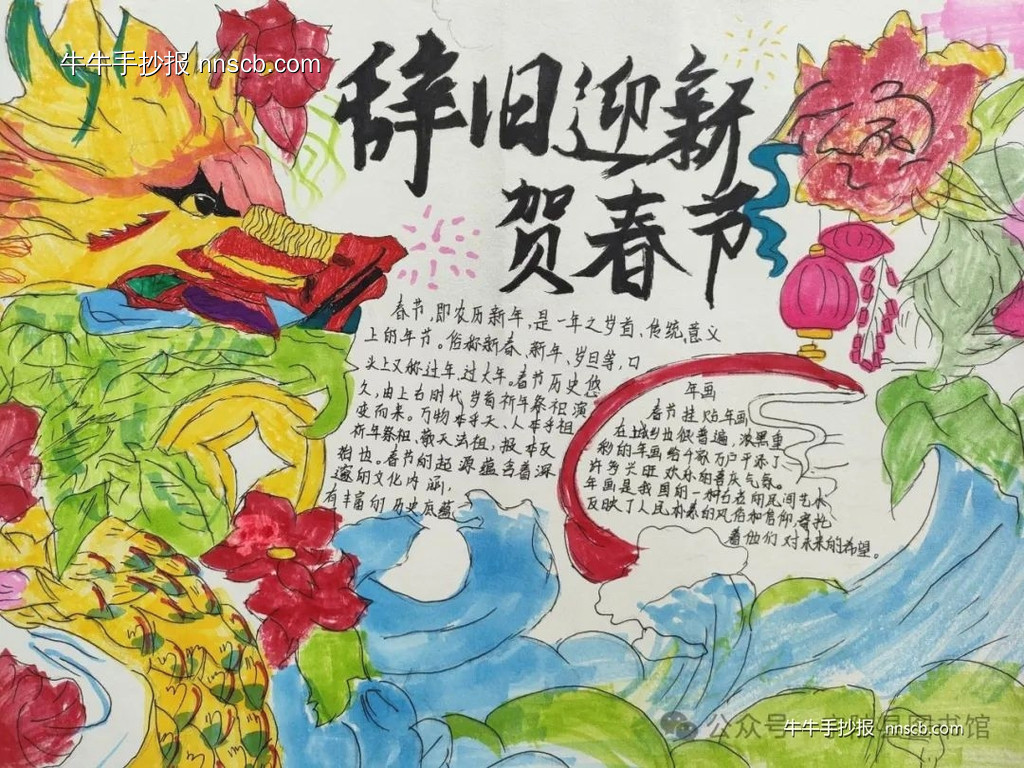 牛牛手抄报 nnscb.com
辞旧迎新
贺春节
春节,即农历新年,是一年之岁首、传统意义
上的年节。俗称新春、新年、岁旦等,口
头上又称过年、过大年。春节历史悠
久,由上古时代岁首祈年祭祀演
变而来。万物本乎天、人本乎祖
祈年祭祖、敬天法祖,报本反
始也。春节的起源蕴含着深
邃的文化内涵,
有丰富的历史底蕴
年画
春节挂贴年画,
在城乡也很普遍,浓黑重
彩的年画给千家万户平添了
许多兴旺欢乐的喜庆气氛。
年画是我国的一种古老的民间艺术
反映了人民朴素的风俗和信仰,寄托
着他们对未来的希望。
公众号
图书馆
牛牛手抄报 nnscb.com